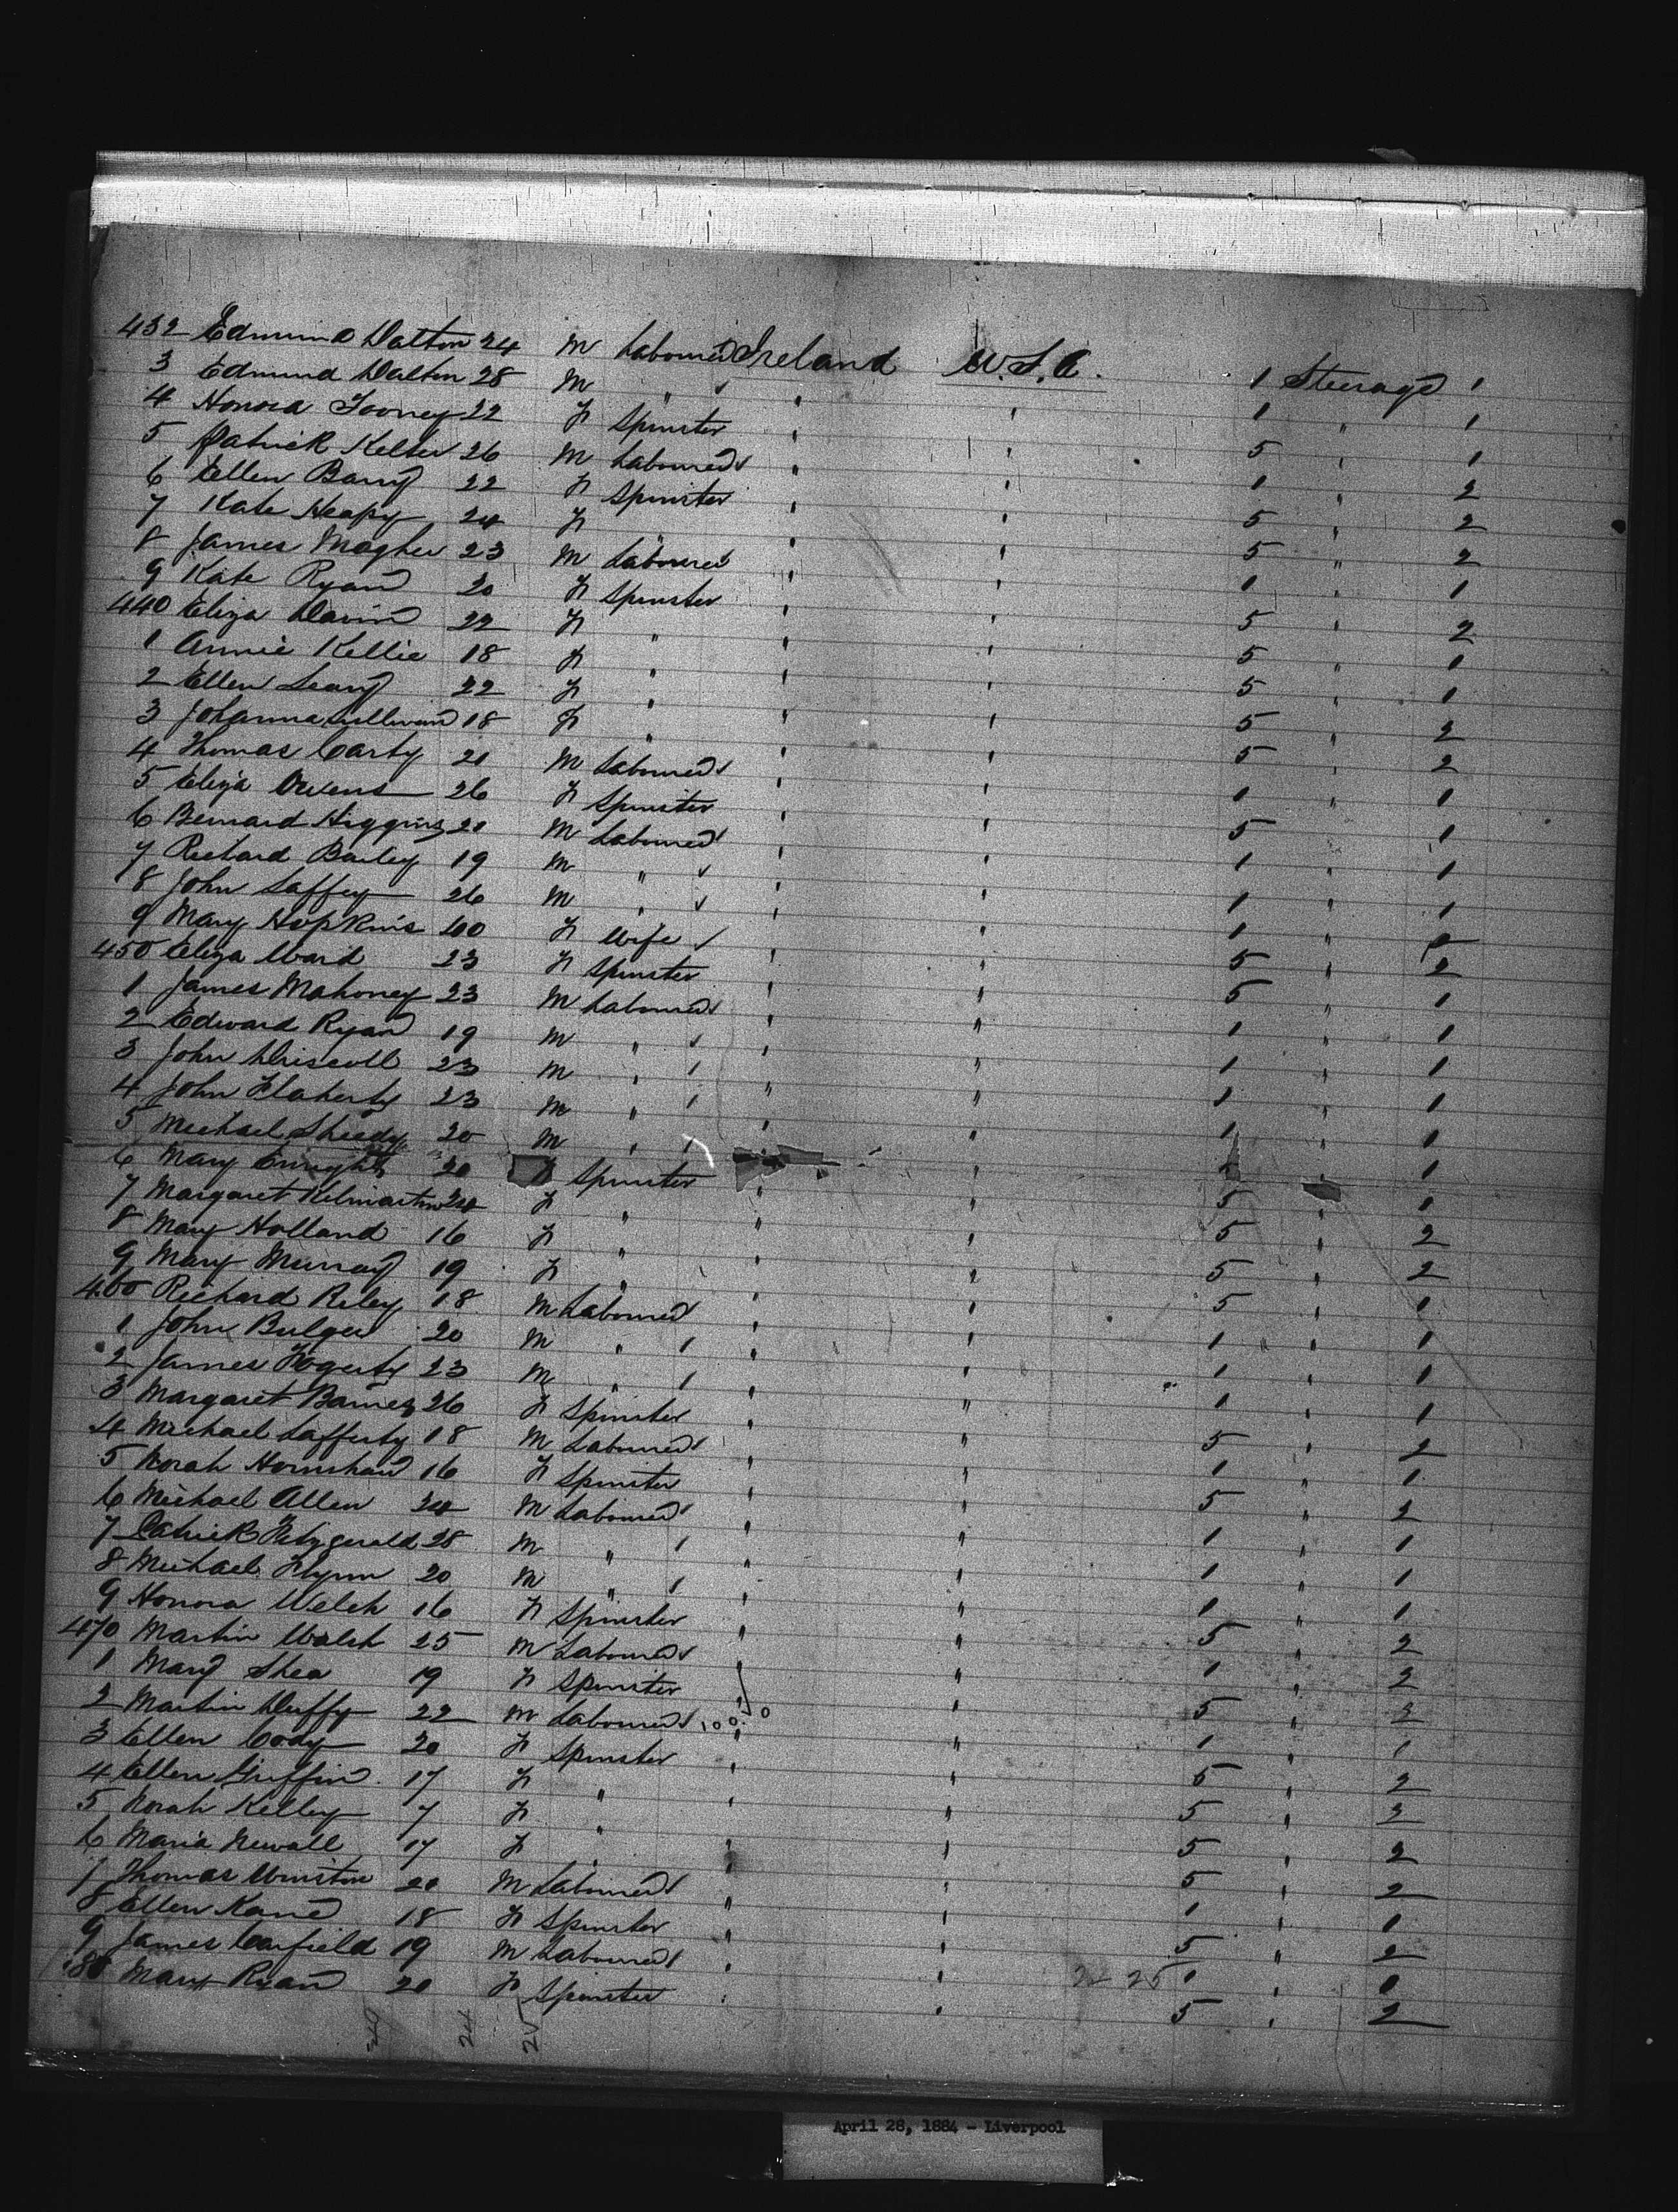 432 Edmund Dalton 24 M Labourer Ireland U.S.A. 1 Steerage 1
3 Edmund Dalton 28 M " " " 1 " 1
4 Honora Tooney 22 F Spinster " " 5 " 1
5 Patrick 26 M Labourer " " 1 " 2
6 Ellen Barry 22 F Spinster " " 5 " 2
7 Kate Heapy 24 F " " " 5 " 2
8 James Magher 23 M Labourer " " 1 " 1
9 Kate Ryan 20 F Spinster " " 5 " 2
440 Eliza Davin 22 F " " " 5 " 1
1 Annie Kellie 18 F " " " 5 " 1
2 Ellen Leary 22 F " " " 5 " 2
3 Johanna Sullivan 18 F " " " 5 " 2
4 Thomas Carty 21 M Labourer " " 1 " 1
5 Eliza Owens 26 F Spinster " " 5 " 1
6 Bernard Higgins 20 M Labourer " " 1 " 1
7 Richard Bailey 19 M " " " 1 " 1
8 John Laffey 26 M " " " 1 "
9 Mary Hopkins 40 F Wife " " 5 " 2
450 Eliza Ward 23 F Spinster " " 5 " 1
1 James Mahoney 23 M Labourer " " 1 " 1
2 Edward Ryan 19 M " " " 1 " 1
3 John Driscoll 23 M " " " 1 " 1
4 John Flaherty 23 M " " " 1 " 1
5 Michael Sheedy 20 M " " " 1
6 Mary Enright 20 F Spinster " " 5 1
7 Margaret Kilmartin 20 F " " " 5 " 2
8 Mary Holland 16 F " " " 5 " 2
9 Mary Murray 19 F " " " 5 " 1
460 Richard Riley 18 M Labourer " " 1 " 1
1 John Bulger 20 M " " " 1 " 1
2 James Fogerty 23 M " " " 1 " 1
3 Margaret Barnes 26 F Spinster " " 5 " 2
4 Michael Lafferty 18 M Labourer " " 1 " 1
5 Norah 16 F Spinster " " 5 " 2
6 Michael Allen 24 M Labourer " " 1 " 1
7 Patrick Fitzgerald 28 M " " " 1 " 1
8 Michael Flynn 20 M " " " 1 " 1
9 Honora Welsh 16 F Spinster " " 5 " 2
470 Martin Walsh 25 M Labourer " " 1 " 2
1 Mary Shea 19 F Spinster " " 5 " 2
2 Martin Duffy 22 M Labourer " " 1 " 1
3 Ellen Cody 20 F Spinster " " 5 " 2
4 Ellen Griffin 17 F " " " 5 " 2
5 Norah Kelley 7 F " " " 5 " 2
6 Maria Newall 17 F " " " 5 " 2
7 Thomas Winston 20 M Labourer " " 1 " 1
8 Ellen Kane 18 F Spinster " " 5 " 2
9 James Canfield 19 M Labourer " " 1 " 1
480 Mary Ryan 20 F Spinster " " 5 " 2
April 28, 1884 - Liverpool